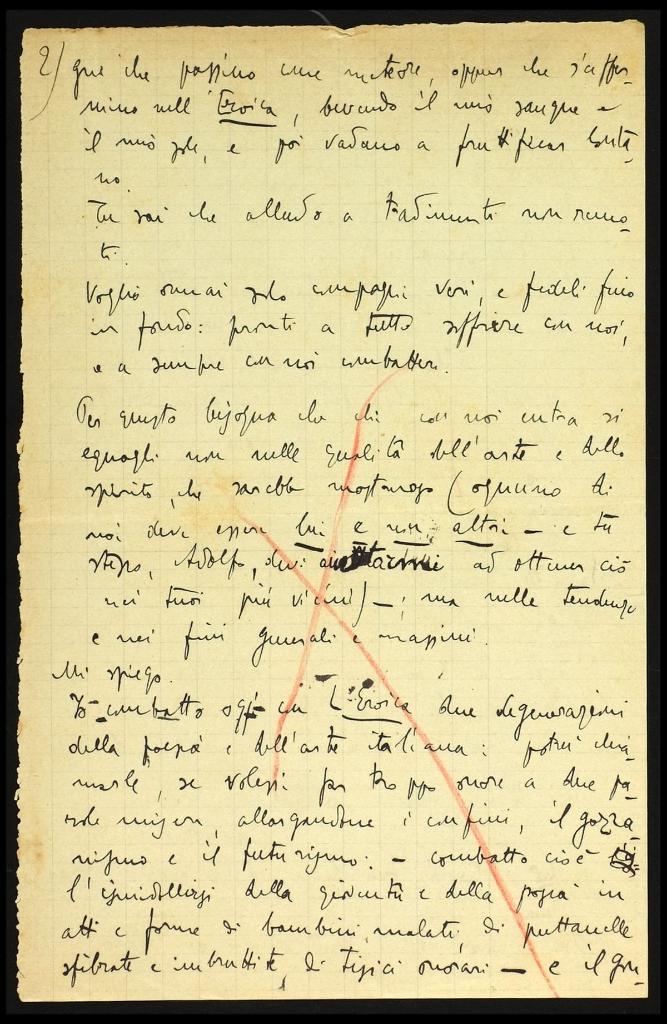 2) que che passino come meteore, oppur che s'affer-
mino nell'Eroica, bevendo il mio sangue e
il mio sole, e poi vadano a fruttificar lonta-
no.
Tu sai che alludo a tradimenti non remo-
ti.
Voglio ormai solo compagni veri, e fedeli fino
in fondo: pronti a tutto soffrire con noi,
e a sempre con noi combattere.
Per questo bisogna che chi con noi entra si
eguagli non nelle qualità dell'arte e dello
spirito, che sarebbe (ognuno di
noi deve essere lui e non altri — e tu
stesso, Adolfo, devi ad ottener ciò
nei tuoi più vicini) —; ma nelle tendenze
e nei fini generali e massimi.
Mi spiego.
Io combatto oggi con L'Eroica due degenerazioni
della poesia e dell'arte italiana: potrei chia-
marle, se volessi far troppo onore a due pa-
role misere, allargandone i confini, il gozza-
nismo e il futurismo: — combatto cioè
l' della gioventù e della poesia in
atti e forme di bambini malati, di puttanelle
sfibrate e imbruttite, di tisici — e il gon-